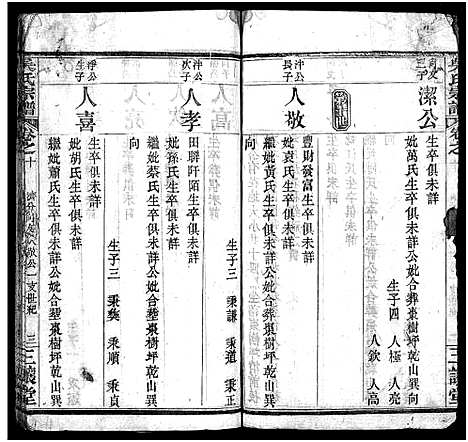 潔公
生卒俱未詳
妣萬氏生卒俱未詳公妣合葬棗樹坪乾山巽向
生子四 人極 人亮
人欽 人高
沖公長子
人敬
豐財發富生卒俱未詳
妣袁氏生卒俱未詳
繼妣黃氏生卒俱未詳公妣合葬棗樹坪乾山巽
向
生子三 秉謙 秉道 秉正
沖公次子
人孝
田聯阡陌生卒俱未詳
妣孫氏生卒俱未詳
繼妣蔡氏生卒俱未詳公妣合塟棗樹坪乾山巽
向
生子三 秉彜 秉順 秉貞
浮公生子
人喜
生卒俱未詳
妣胡氏生卒俱未詳
繼妣蕭氏生卒俱未詳公妣合塟棗樹坪乾山巽
吳氏宗譜
卷之十
公一支世紀
三
三讓堂